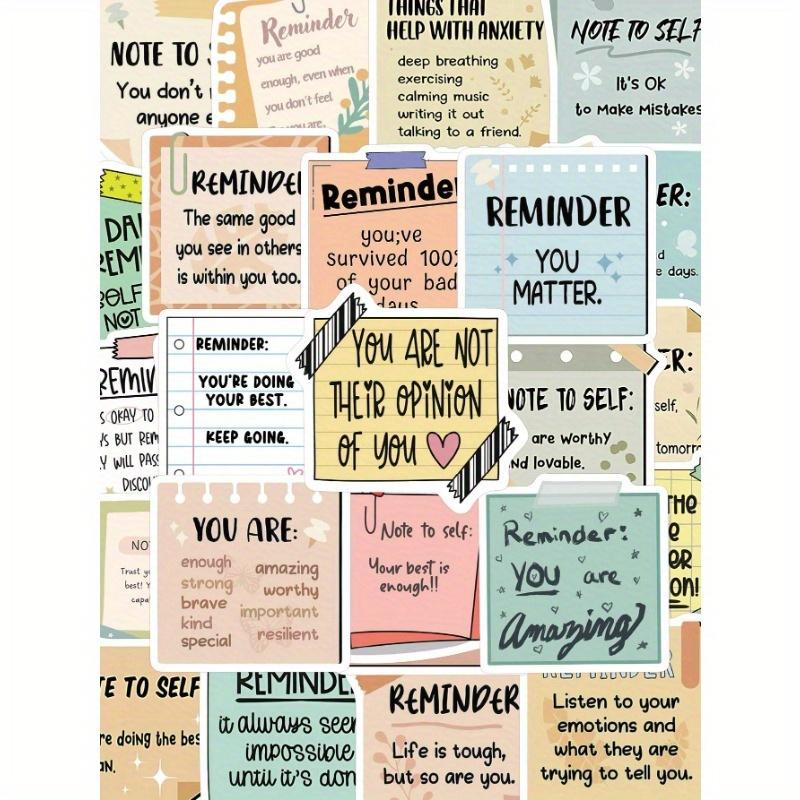 NOTE TO
You don't
anyone
Reminder
you are good
enough, even when
you don't feel
you are.
THINGS THAT
HELP WITH ANXIETY
deep breathing
exercising
calming music
writing it out
talking to a friend.
NOTE TO SELF
It's OK
to Make Mistakes
REMINDER
The same good
you see in others
is within you too.
Reminder
you;ve
survived 100%
of your bad
days
REMINDER
YOU
MATTER.
ER:
days.
NOT
REMINDER:
YOU'RE DOING
YOUR BEST.
KEEP GOING.
YOU ARE NOT
THEIR OPINION
OF YOU
NOTE TO SELF:
are worthy
and lovable.
ER:
self,
OKAY TO
BUT
WILL PASS
YOU ARE:
enough
strong
brave
kind
special
amazing
worthy
important
resilient
Note to self:
Your best is
enough!!
Reminder:
YOU are
Amazing
THE
on!
Trust
best!
TE TO SELF
re doing the bes
an.
REMINDE
it always see
impossible
until it's don
REMINDER
Life is tough,
but so are you.
REMINDER
Listen to your
emotions and
what they are
trying to tell you.